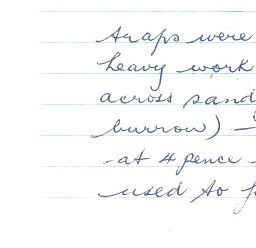 traps were
heavy work
across sand
burrow) —
-at 4 pence
used to